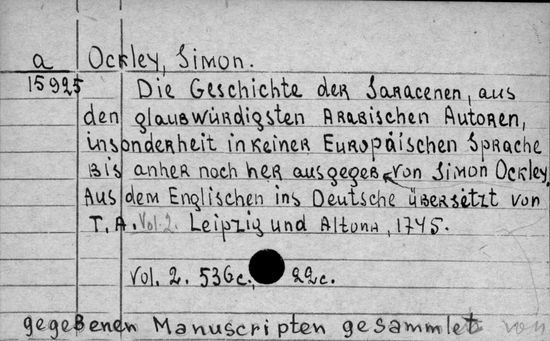 a Ockley, Simon.
15925 Die Geschichte der Saracenen, aus
den glaubwürdigsten Arabischen Autoren,
insonderheit in keiner Europäischen Sprache
bis anher noch her ausgegeb von Simon Ockley,
Aus dem Englischen ins Deutsche übersetzt von
T. A. Vol. 2. Leipzig und Altona, 1745.
Vol. 2. 536c., 22c.
gegebenen Manuscripten gesammlet von